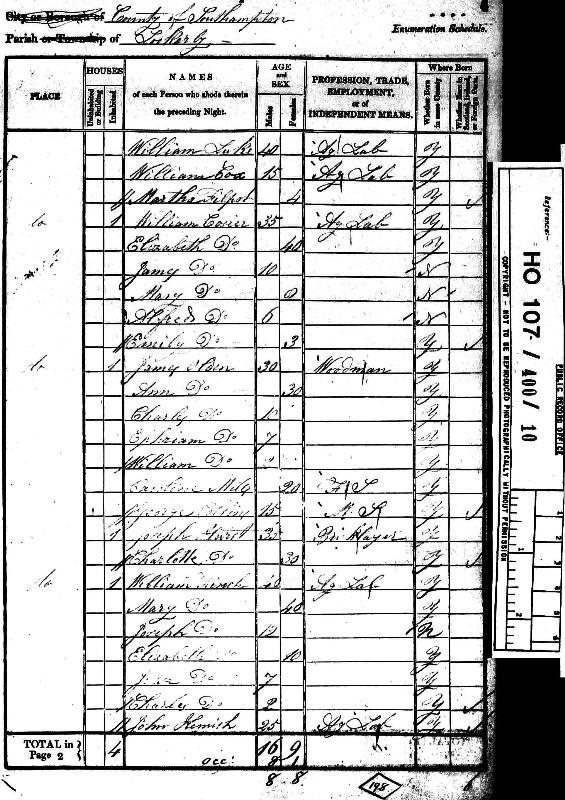 City or Borough of County of Southampton
Parish or Township of Lockerly
Enumeration Schedule.
PLACE
HOUSES
Uninhabited or Building
Inhabited
NAMES
of each Person who abode therein the preceding Night.
AGE and SEX
Males
Females
PROFESSION, TRADE, EMPLOYMENT, or of INDEPENDENT MEANS.
Where Born
Whether Born in same County
Whether Born in Scotland, Ireland, or Foreign Parts.
William Luke 40 Ag Lab Y
William Cox 15 Ag Lab Y
Martha Filpot 4 Y
do 1 William Cosier 35 Ag Lab Y
Elizabeth Do 40 Y
James Do 10 N
Mary Do N
Alfred Do 6 N
Emily Do 3 Y
do 1 James Olden 30 Woodman Y
Ann Do 30 Y
Charles Do Y
Ephraim Do 7
William Do Y
Caroline 20 F S Y
George 15 M S
1 Joseph 35 Bricklayer
Charlotte Do 30 Y
do 1 William 40 Ag Lab Y
Mary Do 40 Y
Joseph Do 12 N
Elizabeth Do 10 Y
Do 7 Y
Charles Do 2 Y
John Kemish 25 Ag Lab Y
TOTAL in Page 2 4 16 9
occ: 8 1
8 8
198
Reference:-
HO 107/400/10
PUBLIC RECORD OFFICE
COPYRIGHT - NOT TO BE REPRODUCED PHOTOGRAPHICALLY WITHOUT PERMISSION
1
2